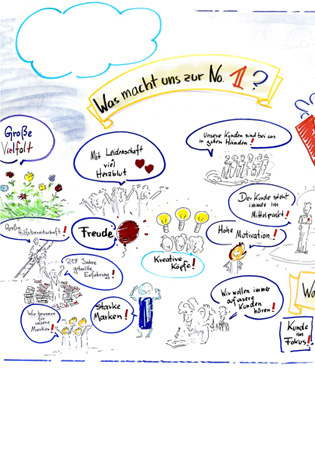 Was macht uns zur No. 1?
Große
Vielfalt
Mit Leidenschaft
viel
Herzblut
Unsere Kunden sind bei uns
in guten Händen!
Der Kunde steht
immer im
Mittelpunkt!
Große
Hilfsbereitschaft!
Freude
Hohe
Motivation!
Kreative
Köpfe!
Jahre
geballte
Erfahrung!
Wir brennen
für unsere
Marken!
Starke
Marken!
Wir wollen immer
auf unsere
Kunden
hören!
Wa
Kunde
im
Fokus!